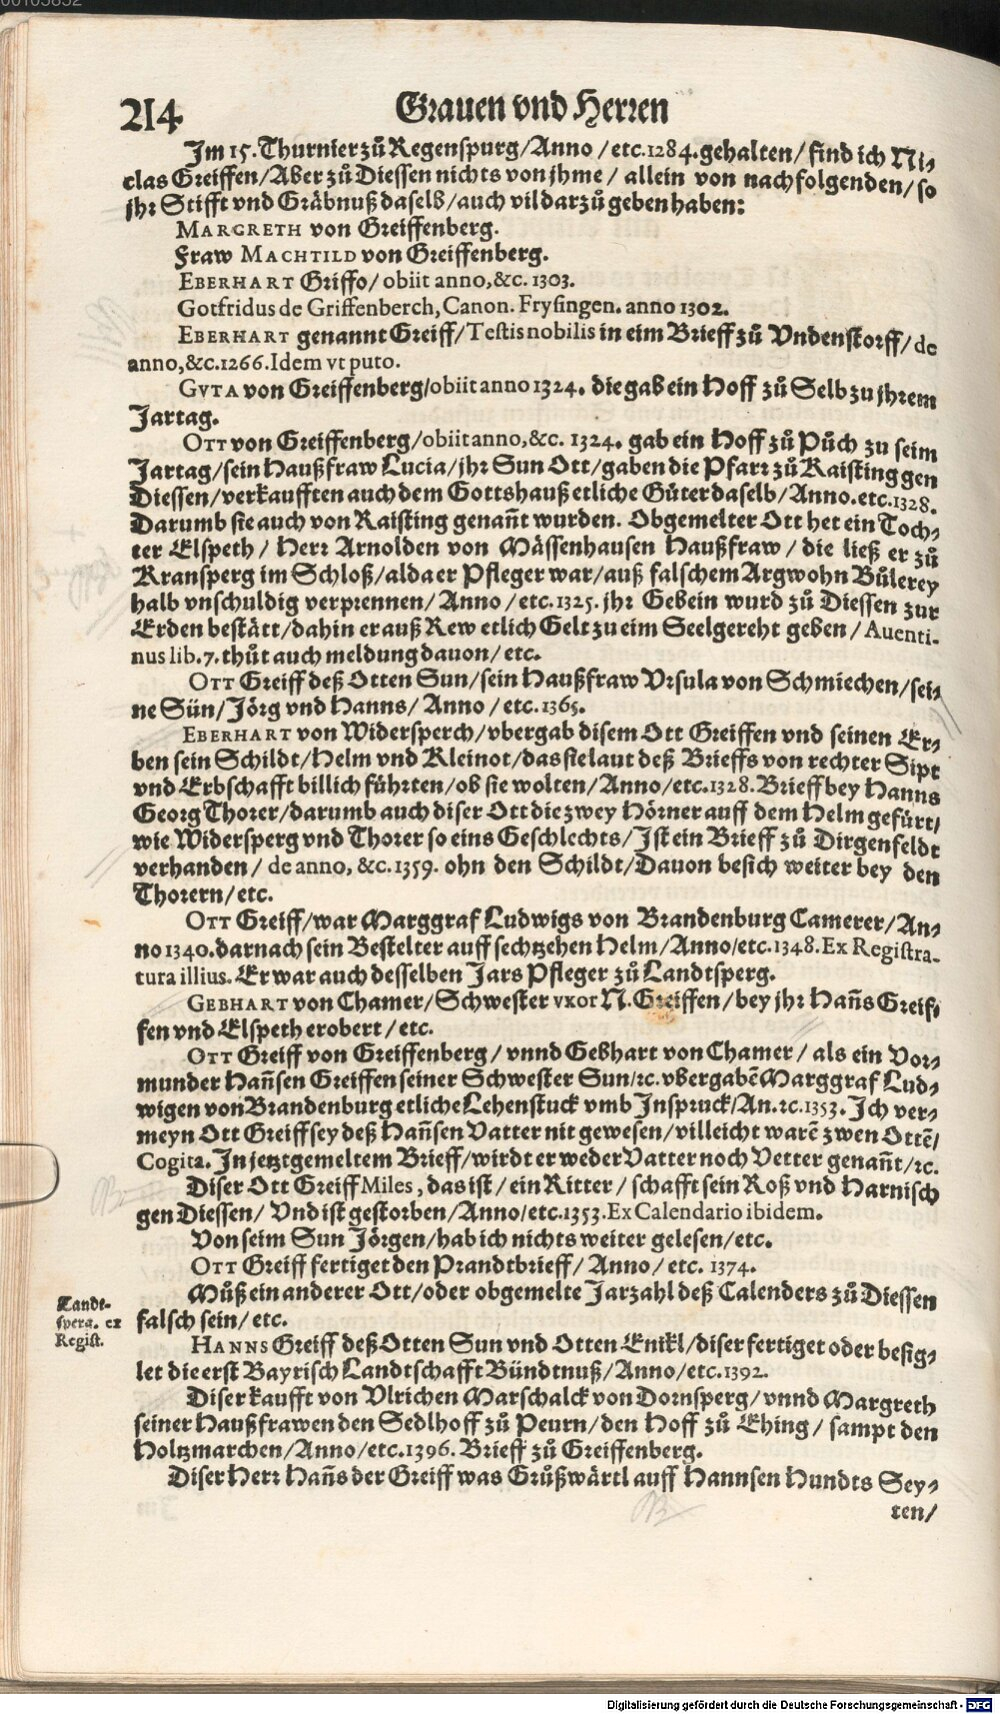 214
Grauen vnd Herren
Im 15. Thurnier zů Regenspurg/Anno/etc.1284.gehalten/find ich Ni-
clas Greiffen/Aber zů Diessen nichts von jhme/ allein von nachfolgenden/so
jhr Stifft vnd Gräbnuß daselb/auch vil darzů geben haben:
MARGRETH von Greiffenberg.
Fraw MACHTILD von Greiffenberg.
EBERHART Griffo/ obiit anno,&c. 1303.
Gotfridus de Griffenberch, Canon. Frysingen. anno 1302.
EBERHART genannt Greiff/Testis nobilis in eim Brieff zů Vndenstorff/de
anno,&c.1266.Idem vt puto.
GVTA von Greiffenberg/obiit anno 1324. die gab ein Hoff zů Selb zu jhrem
Jartag.
OTT von Greiffenberg/obiit anno,&c. 1324. gab ein Hoff zů Půch zu seim
Jartag/sein Haußfraw Lucia/jhr Sun Ott/gaben die Pfarr zů Raisting gen
Diessen/verkaufften auch dem Gottshauß etliche Güter daselb/Anno.etc.1328.
Darumb sie auch von Raisting genañt wurden. Obgemelter Ott het ein Toch-
ter Elspeth/ Herr Arnolden von Mässenhausen Haußfraw/die ließ er zů
Kransperg im Schloß/alda er Pfleger war/auß falschem Argwohn Bůlerey
halb vnschuldig verprennen/Anno/etc.1325. jhr Gebein wurd zů Diessen zur
Erden bestätt/dahin er auß Rew etlich Gelt zu eim Seelgereht geben/Auenti-
nus lib.7. thůt auch meldung dauon/etc.
OTT Greiff deß Otten Sun/sein Haußfraw Vrsula von Schmiechen/sei-
ne Sün/Jörg vnd Hanns/ Anno/etc.1365.
EBERHART von Widersperch/vbergab disem Ott Greiffen vnd seinen Er-
ben sein Schildt/Helm vnd Kleinot/das sie laut deß Brieffs von rechter Sipt
vnd Erbschafft billich führten/ob sie wolten/Anno/etc.1328.Brieff bey Hanns
Georg Thorer/darumb auch diser Ott die zwey Hörner auff dem Helm gefürt/
wie Widersperg vnd Thorer so eins Geschlechts/Ist ein Brieff zů Dirgenfeldt
verhanden/ de anno, &c.1359. ohn den Schildt/Dauon besich weiter bey den
Thorern/etc.
OTT Greiff/war Marggraf Ludwigs von Brandenburg Camerer/An-
no 1340.darnach sein Bestelter auff sechtzehen Helm/Anno/etc.1348.Ex Registra-
tura illius. Er war auch desselben Jars Pfleger zů Landtsperg.
GEBHART von Chamer/Schwester vxor N.Greiffen/bey jhr Hañs Greif-
fen vnd Elspeth erobert/etc.
OTT Greiff von Greiffenberg/vnnd Gebhart von Chamer/ als ein Vor-
munder Hañsen Greiffen seiner Schwester Sun/rc. vbergabẽ Marggraf Lud-
wigen von Brandenburg etliche Lehenstuck vmb Inspruck/An.rc.1353. Ich ver-
meyn Ott Greiff sey deß Hañsen Vatter nit gewesen/villeicht warẽ zwen Ottẽ/
Cogita. In jetztgemeltem Brieff/wirdt er weder Vatter noch Vetter genañt/rc.
Diser Ott Greiff Miles, das ist/ein Ritter/schafft sein Roß vnd Harnisch
gen Diessen/ Vnd ist gestorben/Anno/etc.1353.Ex Calendario ibidem.
Von seim Sun Jörgen/hab ich nichts weiter gelesen/etc.
OTT Greiff fertiget den Prandtbrieff/ Anno/ etc. 1374.
Můß ein anderer Ott/oder obgemelte Jarzahl deß Calenders zů Diessen
falsch sein/etc.
Landt-
sperg. ex
Regist.
HANNS Greiff deß Otten Sun vnd Otten Enikl/diser fertiget oder besig-
let die erst Bayrisch Landtschafft Bündtnuß/Anno/etc.1392.
Diser kaufft von Vlrichen Marschalck von Dornsperg/vnnd Margreth
seiner Haußfrawen den Sedlhoff zů Peurn/den Hoff zů Ehing/ sampt den
Holtzmarchen/Anno/etc.1396. Brieff zů Greiffenberg.
Diser Herr Hañs der Greiff was Grůßwärtl auff Hannsen Hundts Sey-
ten/
Digitalisierung gefördert durch die Deutsche Forschungsgemeinschaft - DFG